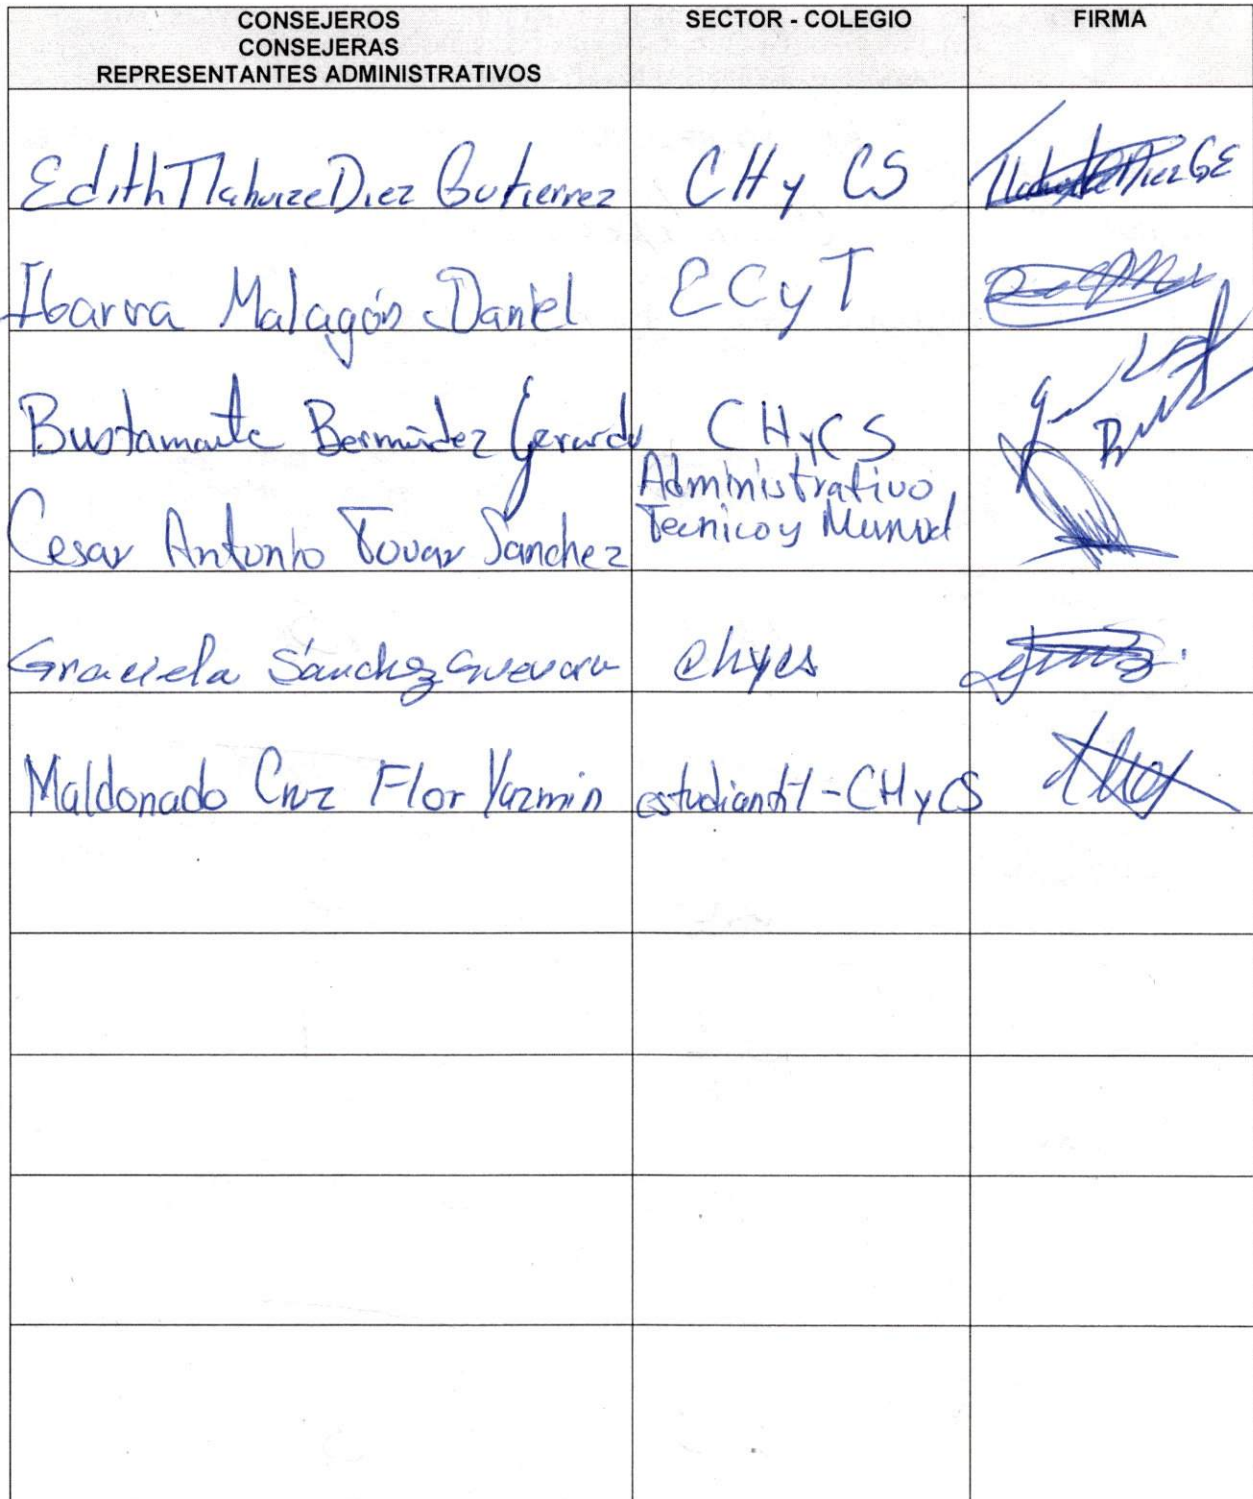 CONSEJEROS
CONSEJERAS
REPRESENTANTES ADMINISTRATIVOS
SECTOR - COLEGIO
FIRMA
Edith Tlahuize Diez Gutierrez CHy CS
Ibarra Malagón Daniel ECyT
Bustamante Bermúdez Gerardo CHyCS
Administrativo,
Cesar Antonio Tovar Sánchez Tecnico y Manual
Graciela Sánchez Guevara chycs
Maldonado Cruz Flor Yazmin estudiantil-CHyCS